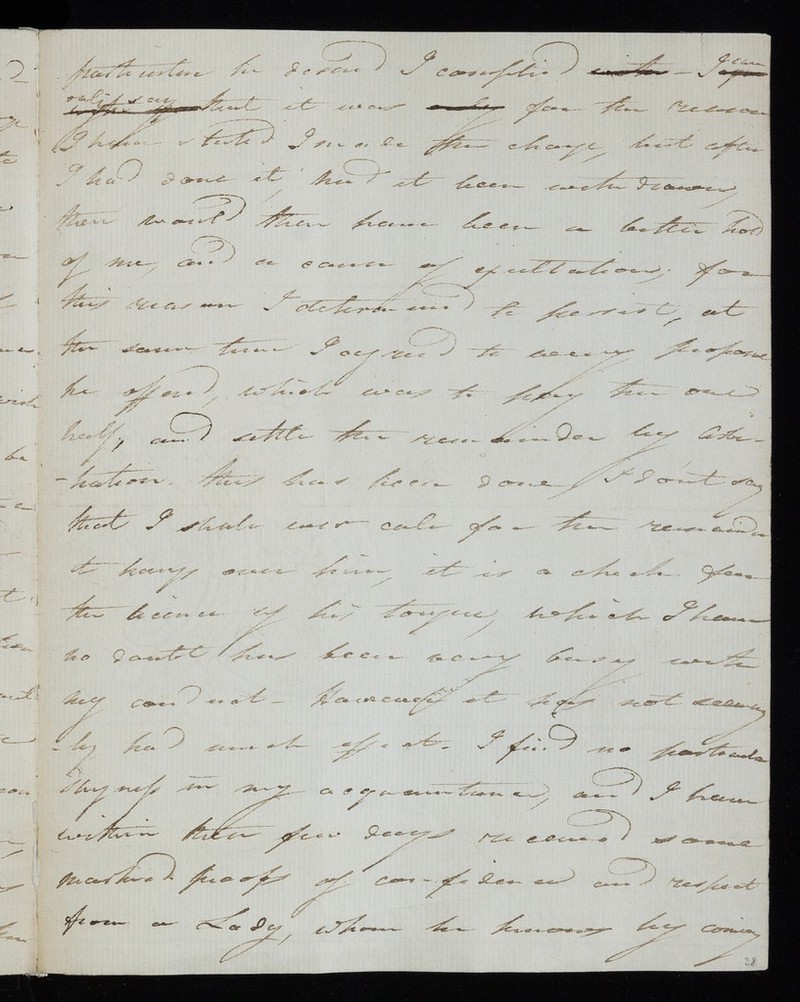 particular he desired I complied with - I can
only say that it was only for the reason
I have stated I made the charge, but after
I had done it, had it been withdrawn,
there would then have been a better hold
of me, and a cause of exultation; for
this reason I determined to persist, at
the same time I agreed to every proposal
he offered, which was to pay the one
half, and settle the remainder by Arbi-
-tration. this has been done I don't say
that I shall ever call for the remainder
it hangs over him, it is a check for
the licence of his tongue, which I have
no doubt has been very busy with
my conduct - However it has not seeming
-ly had much effect. I find no particular
shyness in my acquaintance, and I have
within these few days received some
marked proofs of confidence and respect
from a Lady, whom he knows by coming
28